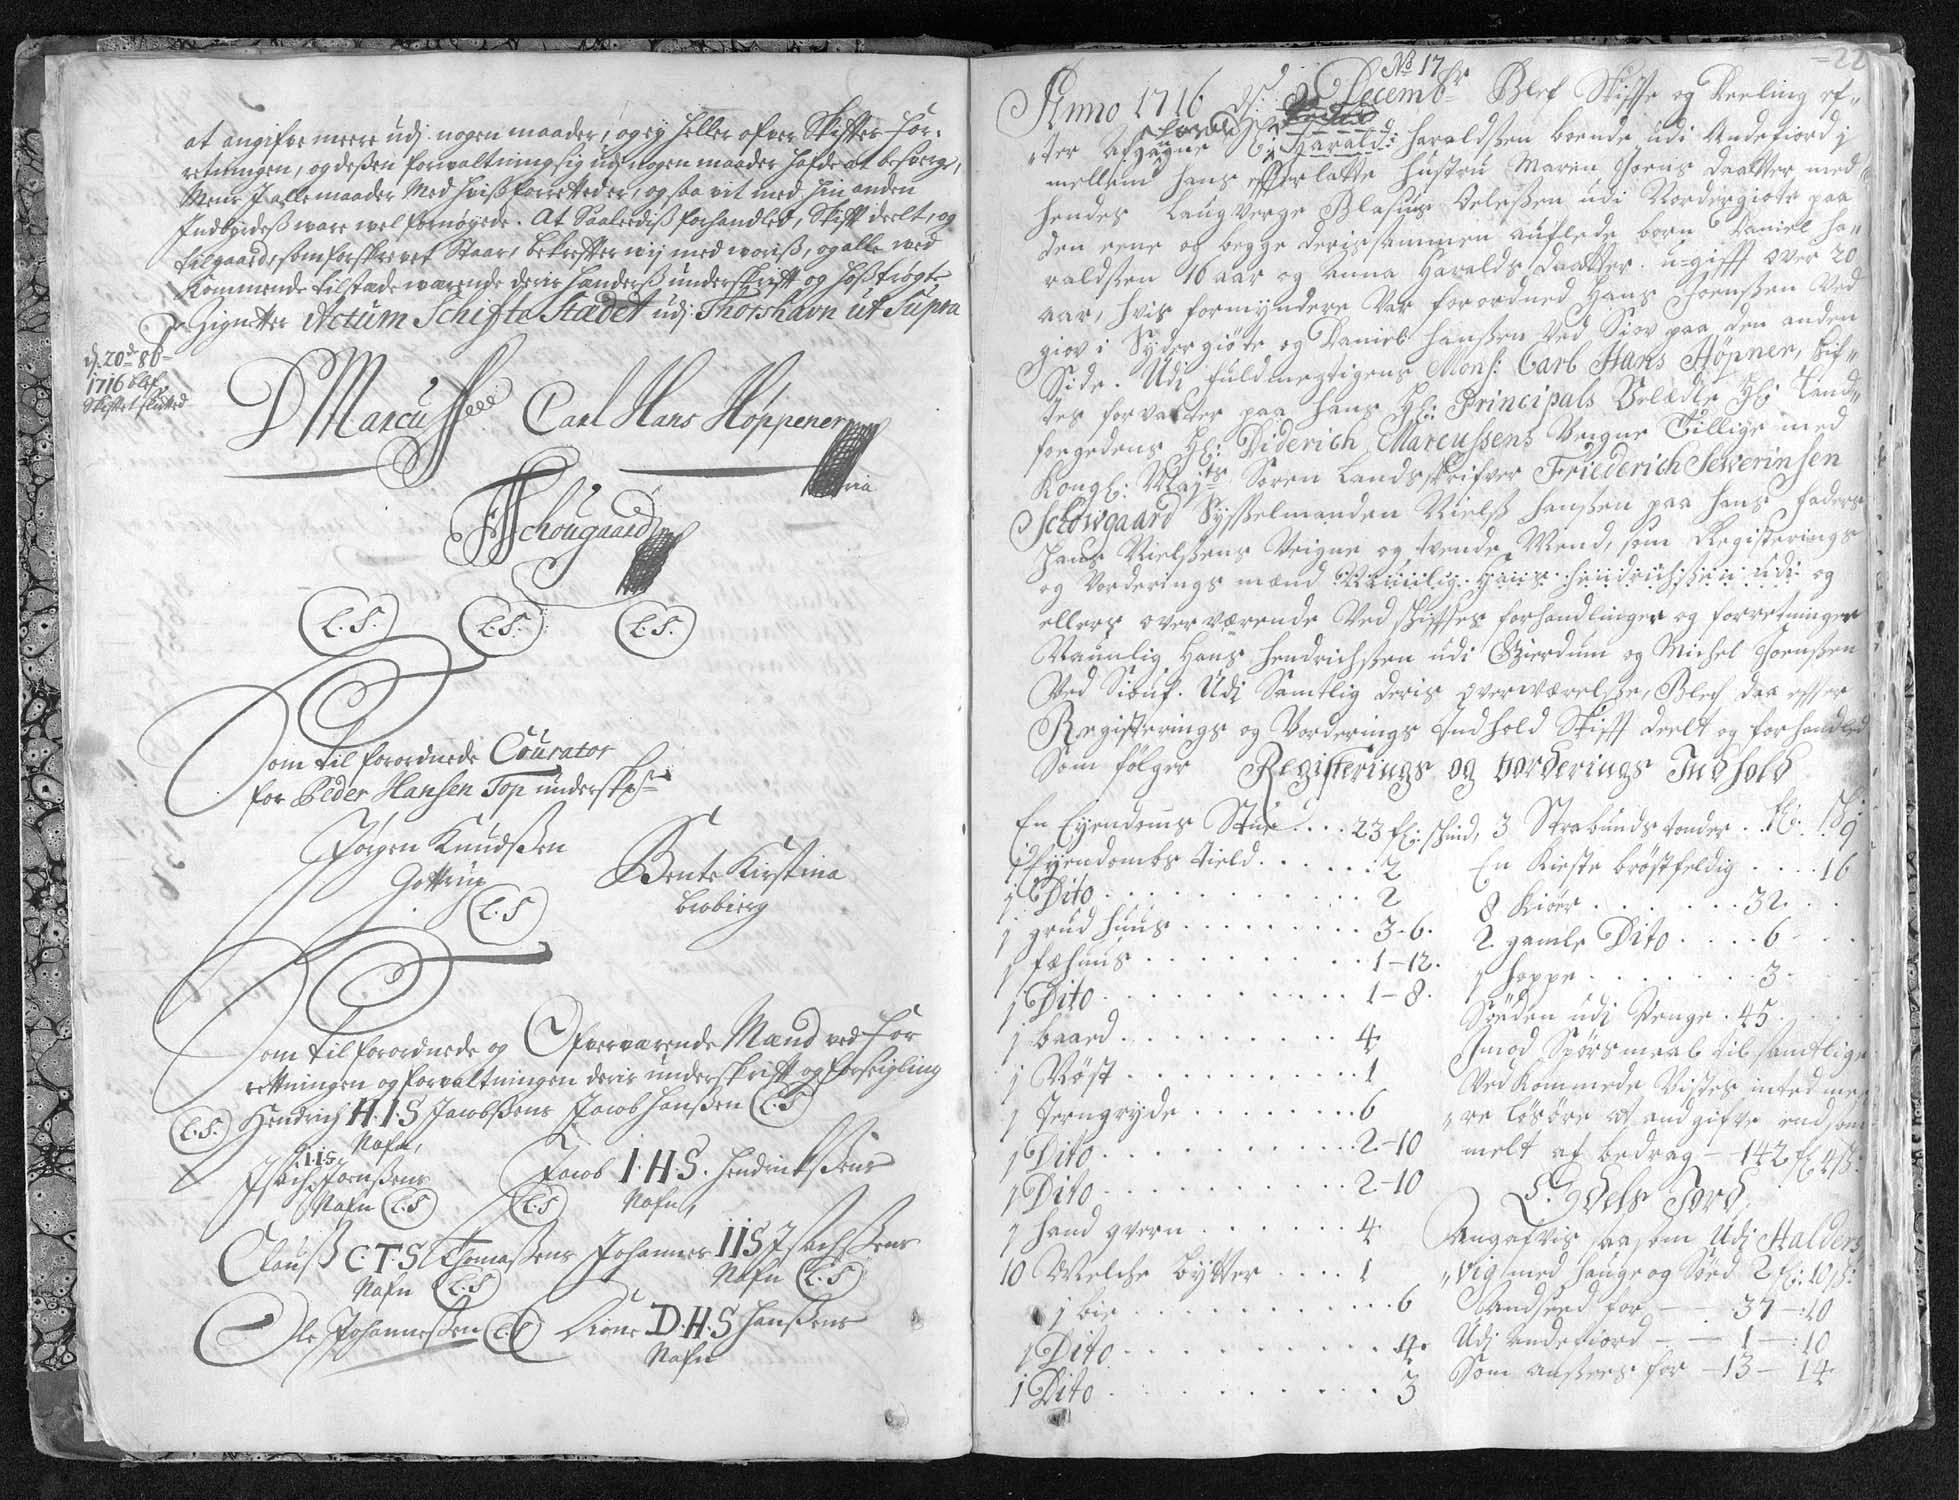 at angifve meere udj nogen maader, og ej heller ofver Skifter for-
retningen, og desen forvaltning sig udj nogen maader hafde at besverge,
Mens J alle maader med hvis forrettedes, og saa vit med hin anden
Indbyrdes ware wel fornøyede. At Saaledis forhandlet, Skift deelt, og
tilgaaed, som forskrevet Staar, bekrefter wij med woris, og alle ved
kommende tilstædewarende deris hænders underskrift og hostrøgte
Zignetter Actum Schifte Stædet udj Thorshavn ut Supra
d. 20de 8b
1716 blef
Skiftet sluted
D Marcussen Carl Hans Höppener
ria
FSSchougaard
L.S. L.S. L.S.
Som til forordnede Courator
for Peder Hansen Top underskr
Jörgen Knudsen
Gottrup
L.S
Bente Kirstina
Brobierg
Som til forordnede og Ofverværende Mænd ved for
rettningen og forvaltningen deris underskrift og forseigling
L.S. Hendrich H.I.S Jacobsens Jacob Hansen L.S
Nafn,
I.I.S.
Jsach Joensens Jacob I.H.S. Hendriksens
Nafn L.S L.S Nafn,
Clauss C.T.S Thomasens Johannes IIS Jsachsens
Nafn L.S Nafn L.S
Ole Johannessen L.S Dione D.H.S Hansens
Nafn
No 17
22
Anno 1716 d: Decembr Blef Skifte og Deeling ef-
ter Afgagne Harald: Haraldsen boende udi Andefiord j
mellem hans efterlatte Hustru Maren Joens daatter med
hendes Laugverge Blasius Olessen udi Nordergiøte paa
den eene og begge deris sammen auflede børn Daniel Ha-
raldsen 16 aar og Anna Haralds daatter u-gift over 20
aar, hvis formyndere Var forordned Hans Joensen Ved
giov i Sydergiøte og Daniel Hansen Ved Siov paa den anden
Side. Udi fuldmegtigens Mons: Carl Hans Höpner, Gif-
tes forvalter paa hans Hl: Principals Velædle Hl: Land-
fogedens Hl: Diderich Marcussens Veigne Tillige med
Kongl: Mayts Soren landsskrifver Friederich Sewerinsen
Schowgaard Sysselmanden Niels Hansen paa hans faders
Hans Nielsens Veigne og tvende Mend, som Registerings
og Vorderings mænd Naunlig Hans Hendrichsen udi og
ellers overværende Ved skiftes forhandlinger og forretninger
Naunlig Hans Hendrichsen udi Gierdum og Michel Joensen
Ved Siouf. Udi Samtlig deris overværelse, Blef daa efter
Registerings og Vorderings Indhold Skift deelt og forhandled
Som følger Registerings og Vorderings Indhold
En Eyendoms Stue . . . . 23 fl: skind,
1 Eyendombs Tield . . . . . 2
1 Dito . . . . . . . 2
1 grud huus . . . . . . 3-6.
1 fæhuus . . . . . . 1-12.
1 Dito . . . . . . . 1-8.
1 baard . . . . . . . 4
1 Røst . . . . . . . 1
1 Jerngryde . . . . . . 6
1 Dito . . . . . . . 2-10
1 Dito . . . . . . . 2-10
1 hand qvern . . . . . . 4
10 Melche bytter . . . . 1
1 bie . . . . . . . 6
1 Dito . . . . . . . 4.
1 Dito . . . . . . . 3
3 Strabunds tønder . . fl: . skj: 9
En Kieste brøstfeldig . . . . 16
8 Kiøer . . . . . . 32. . .
2 gamle Dito . . . . 6 . . .
1 hoppe . . . . . . 3 . . .
Søeden udi Penge . 45. . .
Jmod Spørsmaal til samtlige
Vedkommede Vistes inted me-
re løsøre at andgifve end som
melt af bedrag - 142 fl: 4 sk:
E. Odels Jord
Angafvis saasom Udi Halders
vig med Hauge og Søed 2 fl: 10 sk:
Andseed for - - 37 - 10
Udi Andefiord - - 1 - : 10
Som ansees for - 13 - 14